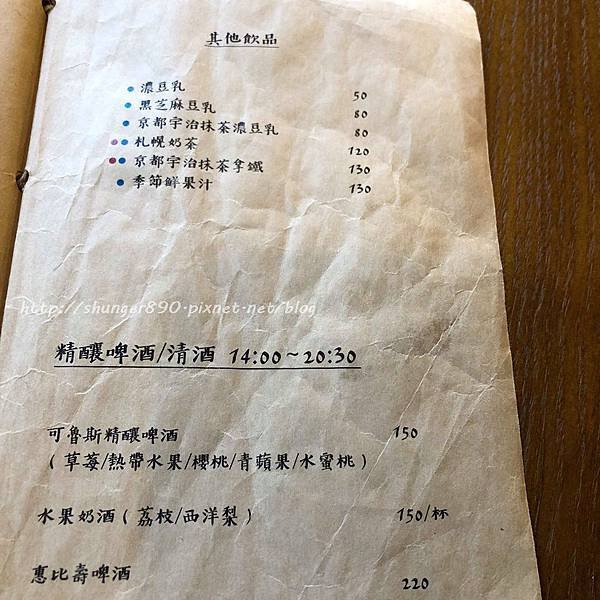 其他飲品
濃豆乳 50
黑芝麻豆乳 80
京都宇治抹茶濃豆乳 80
札幌奶茶 120
京都宇治抹茶拿鐵 130
季節鮮果汁 130
http://shunger890.pixnet.net/blog
精釀啤酒/清酒 14:00~20:30
可魯斯精釀啤酒 150
(草莓/熱帶水果/櫻桃/青蘋果/水蜜桃)
水果奶酒(荔枝/西洋梨) 150/杯
惠比壽啤酒 220